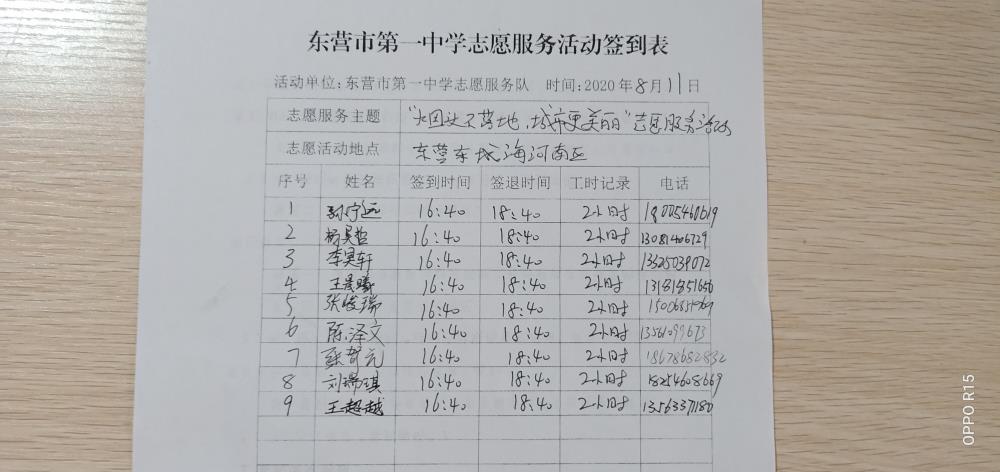 东营市第一中学志愿服务活动签到表
活动单位:东营市第一中学志愿服务队 时间:2020年8月11日
志愿服务主题 "火因头不落地,城市更美丽"志愿服务活动
志愿活动地点 东营东城海河南区
序号 姓名 签到时间 签退时间 工时记录 电话
1 孙宁远 16:40 18:40 2小时 18005460619
2 杨昊哲 16:40 18:40 2小时 13081406729
3 李昊轩 16:40 18:40 2小时 13325039072
4 王晨曦 16:40 18:40 2小时 13181851656
5 张峻瑞 16:40 18:40 2小时
6 陈泽文 16:40 18:40 2小时 13561099673
7 16:40 18:40 2小时 18678682832
8 刘瑞琪 16:40 18:40 2小时 18254608669
9 王超越 16:40 18:40 2小时 13563371180
OPPO R15